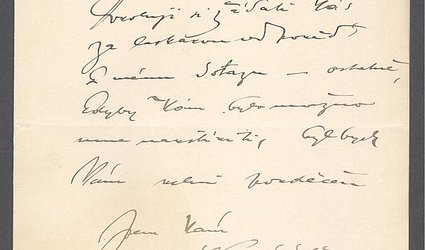 Dovoluji si žádati Vás
za laskavou odpověď
k mému dotazu — ostatně,
kdyby Vám bylo možno
mne navštíviti, byl bych
Vám velmi povděčen
Jsem Vám